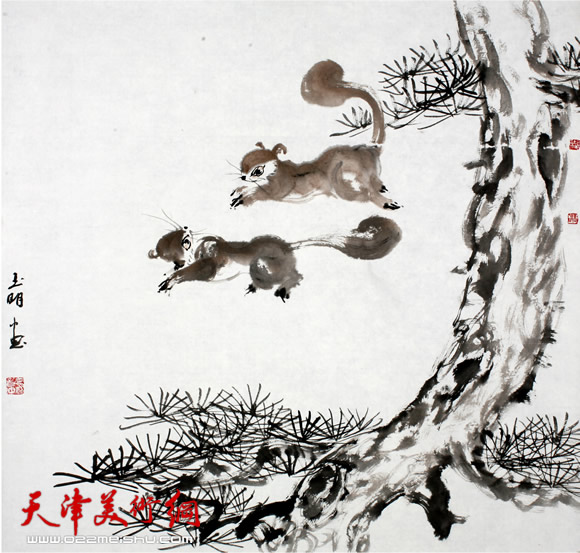 玉明画
天津美術網
www.022meishu.com